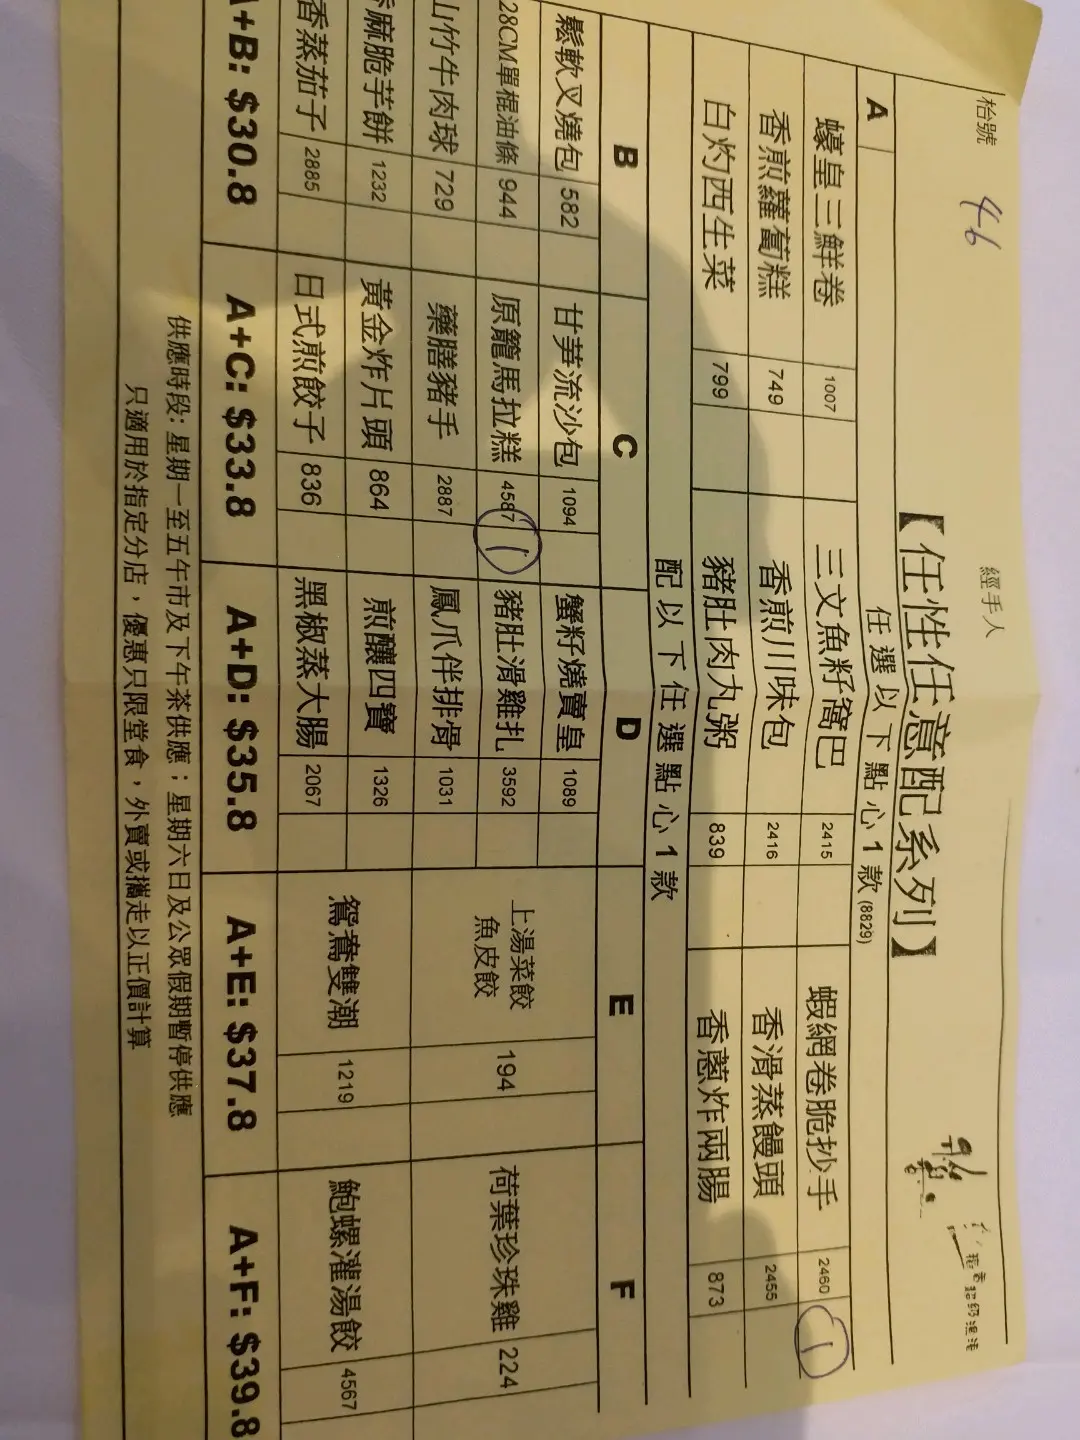 枱號 46
經手人
【任性任意配系列】
A 任選以下點心1款(8829)
蠔皇三鮮卷 1007 三文魚籽窩巴 2415 蝦網卷脆抄手 2460 1
香煎蘿蔔糕 749 香煎川味包 2416 香滑蒸饅頭 2455
白灼西生菜 799 豬肚肉丸粥 839 香蔥炸兩腸 873
配以下任選點心1款
B C D E F
鬆軟叉燒包 582 甘荀流沙包 1094 蟹籽燒賣皇 1089 上湯菜餃
28CM單棍油條 944 原籠馬拉糕 4587 1 豬肚滑雞扎 3592 魚皮餃 194 荷葉珍珠雞 224
山竹牛肉球 729 藥膳豬手 2887 鳳爪伴排骨 1031
麻脆芋餅 1232 黃金炸片頭 864 煎釀四寶 1326 鴛鴦雙潮 1219 鮑螺灌湯餃 4567
香蒸茄子 2885 日式煎餃子 836 黑椒蒸大腸 2067
A+B: $30.8 A+C: $33.8 A+D: $35.8 A+E: $37.8 A+F: $39.8
供應時段: 星期一至五午市及下午茶供應；星期六日及公眾假期暫停供應
只適用於指定分店，優惠只限堂食，外賣或攜走以正價計算